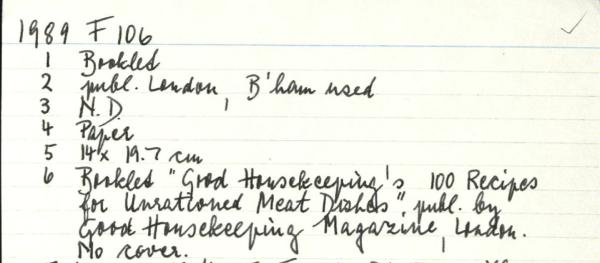 1989 F 106
1 Booklet
2 publ. London, B'ham used
3 N.D.
4 Paper
5 14 x 19.7 cm
6 Booklet "Good Housekeeping's 100 Recipes
for Unrationed Meat Dishes", publ. by
Good Housekeeping Magazine, London.
No cover.